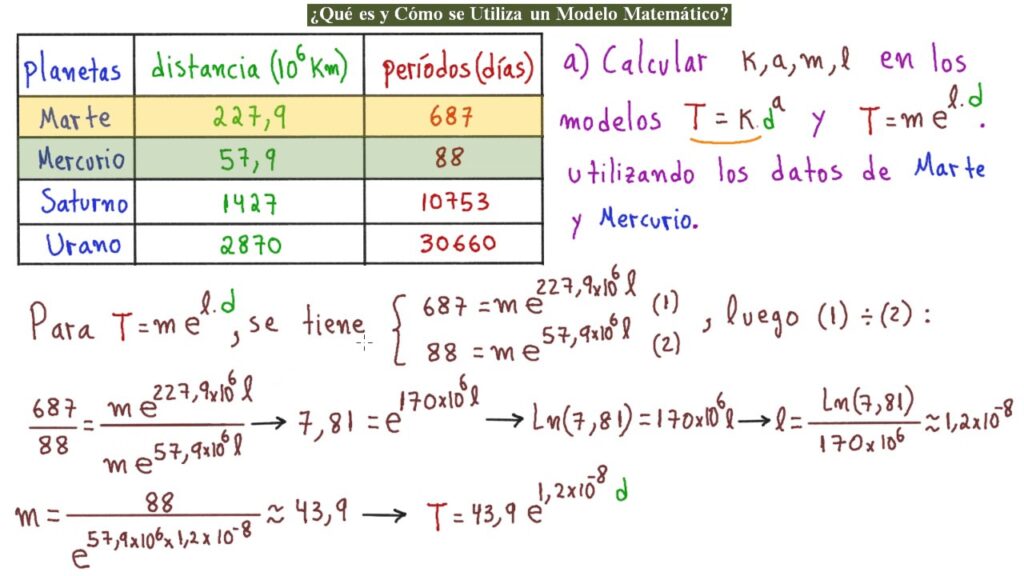 ¿Qué es y Cómo se Utiliza un Modelo Matemático?
planetas distancia (10⁶ Km) períodos (días)
Marte 227,9 687
Mercurio 57,9 88
Saturno 1427 10753
Urano 2870 30660
a) Calcular K, a, m, l en los
modelos T = K.dᵃ y T = m e^{l.d}.
utilizando los datos de Marte
y Mercurio.
Para T = m e^{l.d}, se tiene { 687 = m e^{227,9x10⁶ l} (1)
88 = m e^{57,9x10⁶ l} (2) , luego (1) ÷ (2) :
687/88 = m e^{227,9x10⁶ l} / m e^{57,9x10⁶ l} → 7,81 = e^{170x10⁶ l} → Ln(7,81) = 170x10⁶ l → l = Ln(7,81) / 170x10⁶ ≈ 1,2x10⁻⁸
m = 88 / e^{57,9x10⁶ x 1,2x10⁻⁸} ≈ 43,9 → T = 43,9 e^{1,2x10⁻⁸ d}